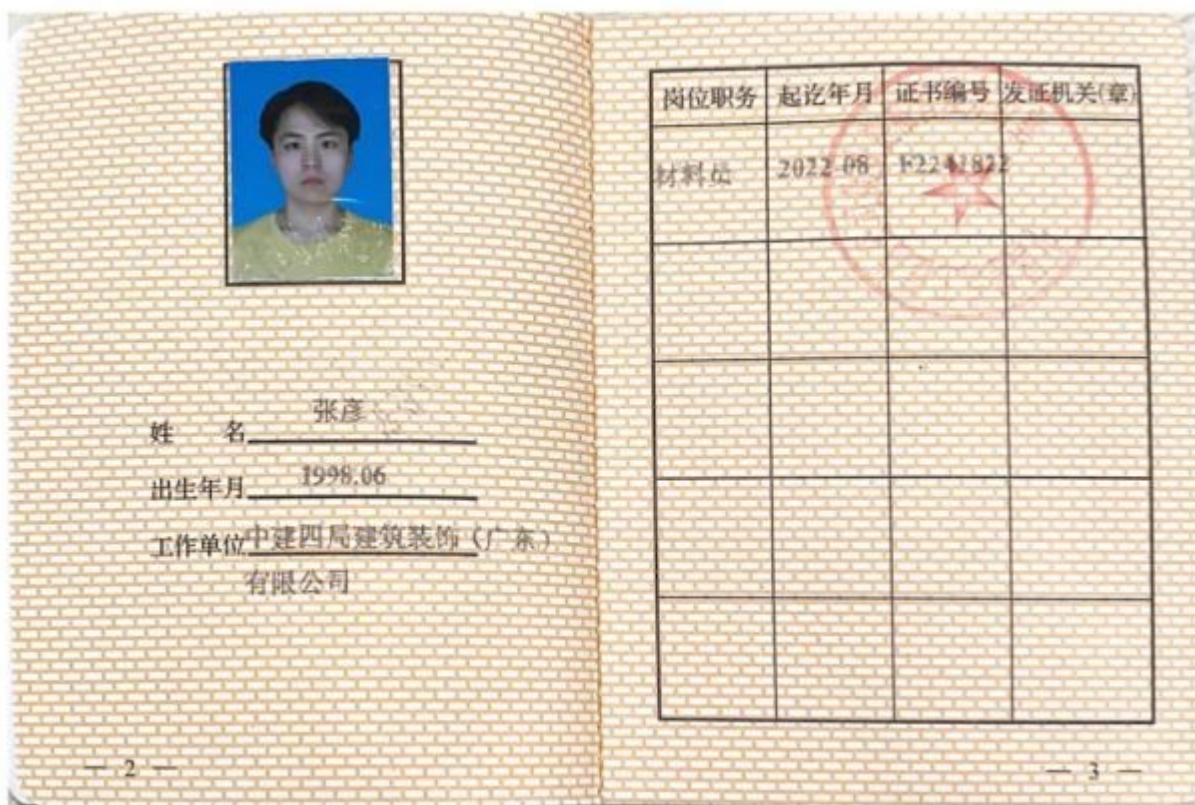 姓 名 张彦
出生年月 1998.06
工作单位 中建四局建筑装饰（广东）
有限公司
— 2 —
岗位职务 起讫年月 证书编号 发证机关(章)
材料员 2022-08 F2241822
— 3 —